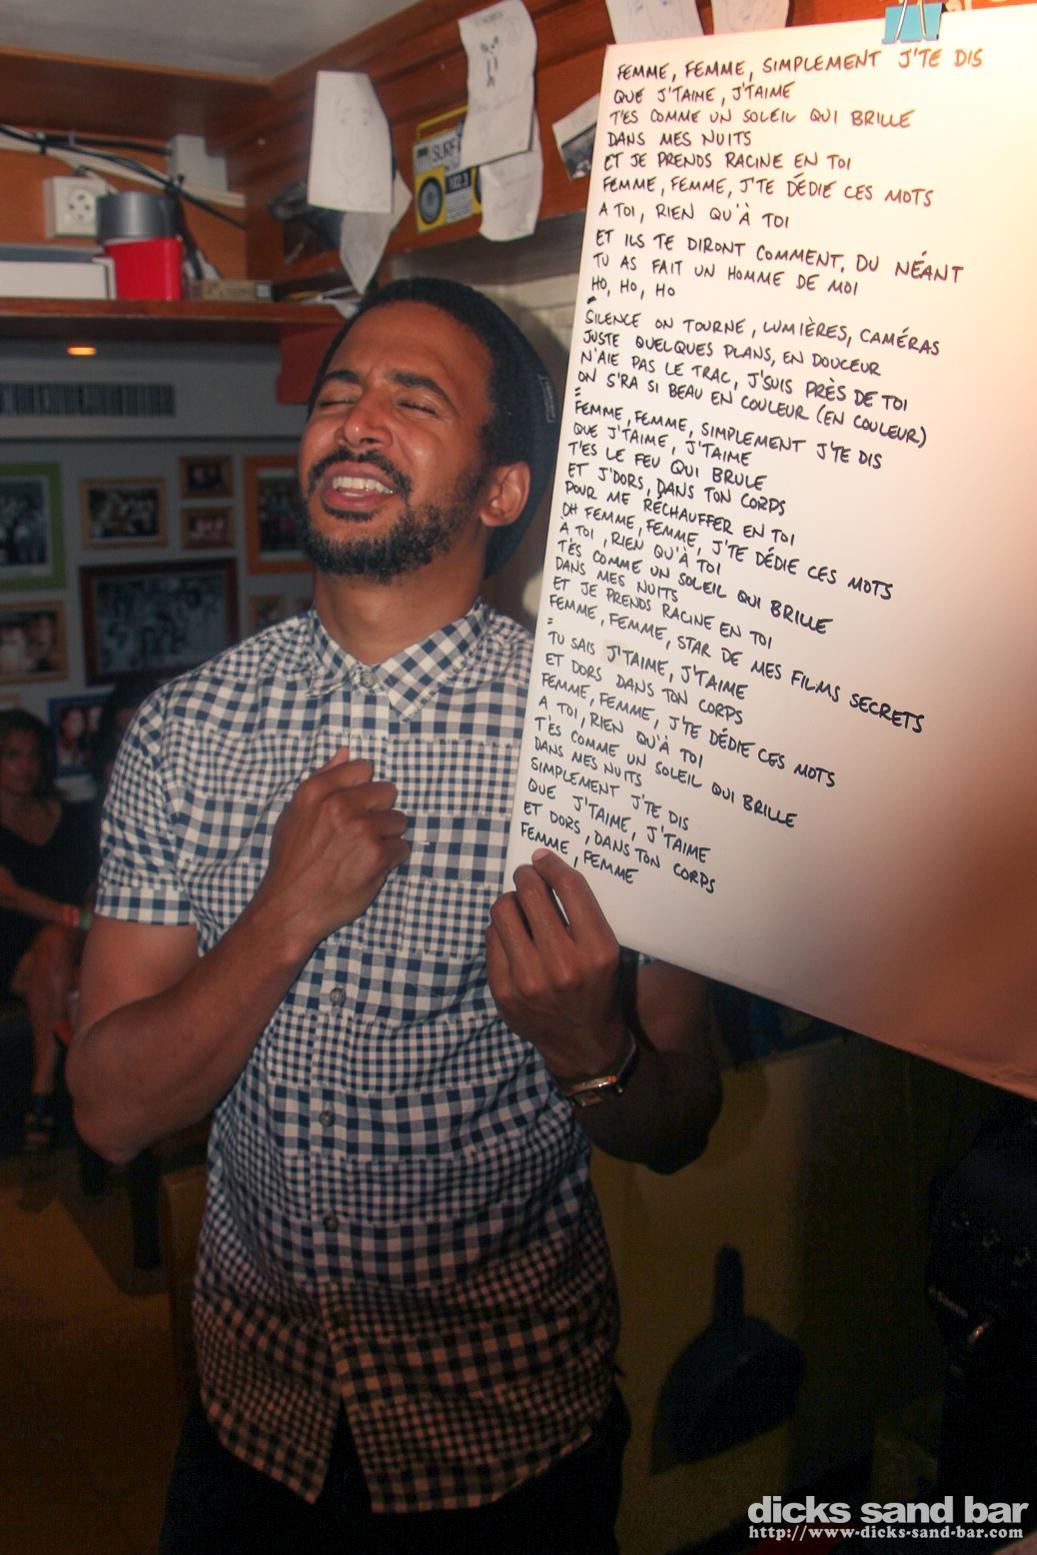 SURF
FEMME, FEMME, SIMPLEMENT J'TE DIS
QUE J'TAIME, J'TAIME
T'ES COMME UN SOLEIL QUI BRILLE
DANS MES NUITS
ET JE PRENDS RACINE EN TOI
FEMME, FEMME, J'TE DÉDIE CES MOTS
A TOI, RIEN QU'À TOI
ET ILS TE DIRONT COMMENT, DU NÉANT
TU AS FAIT UN HOMME DE MOI
HO, HO, HO
SILENCE ON TOURNE, LUMIÈRES, CAMÉRAS
JUSTE QUELQUES PLANS, EN DOUCEUR
N'AIE PAS LE TRAC, J'SUIS PRÈS DE TOI
ON S'RA SI BEAU EN COULEUR (EN COULEUR)
=
FEMME, FEMME, SIMPLEMENT J'TE DIS
QUE J'TAIME, J'TAIME
T'ES LE FEU QUI BRULE
ET J'DORS, DANS TON CORPS
POUR ME RÉCHAUFFER EN TOI
OH FEMME, FEMME, J'TE DÉDIE CES MOTS
À TOI, RIEN QU'À TOI
T'ES COMME UN SOLEIL QUI BRILLE
DANS MES NUITS
ET JE PRENDS RACINE EN TOI
FEMME, FEMME, STAR DE MES FILMS SECRETS
=
TU SAIS J'TAIME, J'TAIME
ET DORS DANS TON CORPS
FEMME, FEMME, J'TE DÉDIE CES MOTS
A TOI, RIEN QU'À TOI
T'ES COMME UN SOLEIL QUI BRILLE
DANS MES NUITS
SIMPLEMENT J'TE DIS
QUE J'TAIME, J'TAIME
ET DORS, DANS TON CORPS
FEMME, FEMME
dicks sand bar
http://www-dicks-sand-bar.com